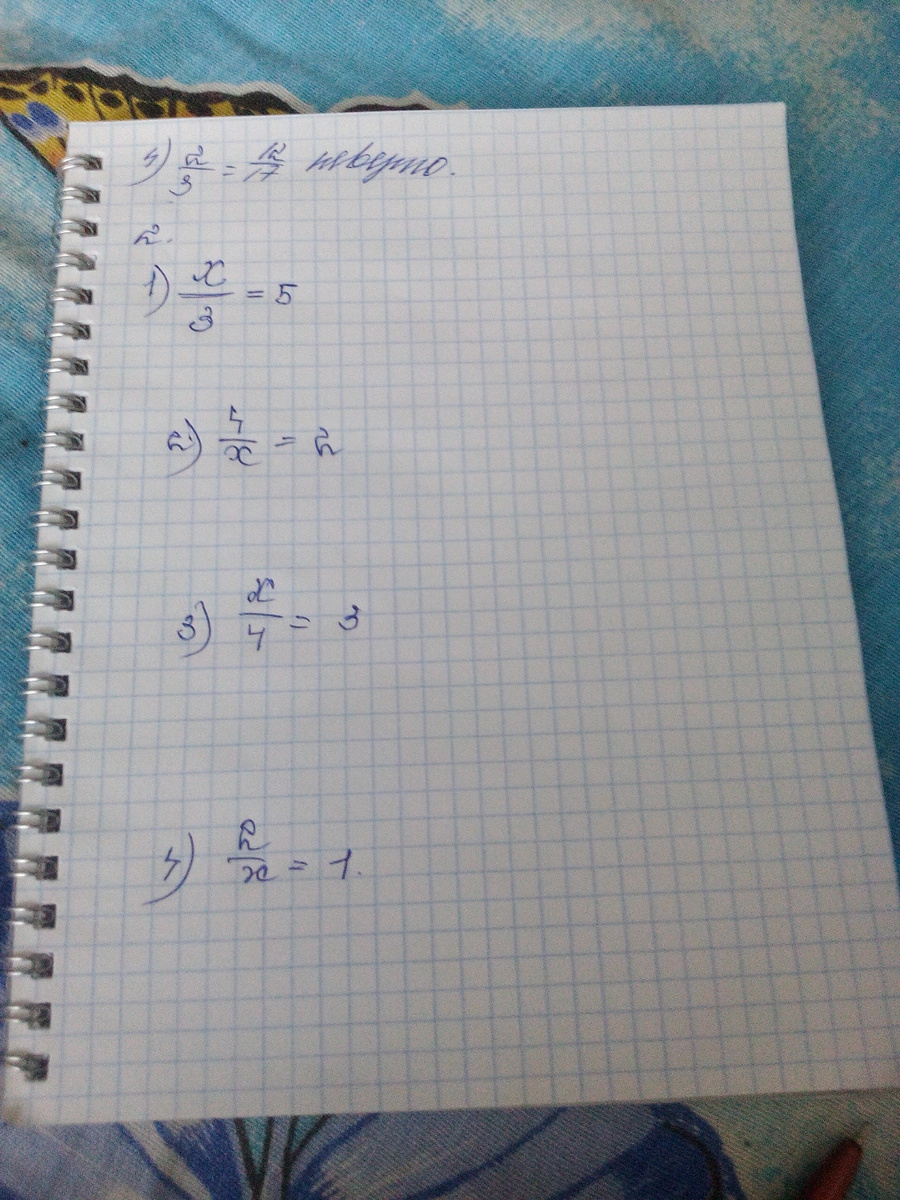 4) 2/3 = 12/17 неверно.
2.
1) x/3 = 5
2) 4/x = 2
3) x/4 = 3
4) 2/x = 1.